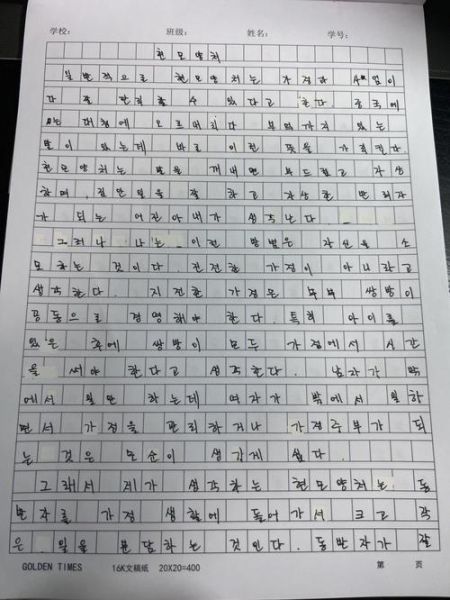 学校: 班级: 姓名: 学号:
현모양처
일반적으로 현모양처는 가정과 사업이
다 잘 만족할 수 있다고 한다. 중국에
대청에 오르며 부엌까지 있는
말이 있는데 바로 이런 뜻을 가르킨다.
현모양처는 말을 꺼내면 부드럽고 자상
하며, 집안일을 잘 하고 자상한 반려자
가 되는 어진아내가 생각난다
그러나 나는 이런 방법은 자신을 소
모하는 것이다. 진전한 가정이 아니라고
생각한다. 지전한 가정은 부부 쌍방이
공동으로 경영해야 한다. 특히 아이를
있은 후에 쌍방이 모두 가정에서 시간
을 써야 한다고 생각한다. 남자가 밖
에서 일만 하는데 여자가 밖에서 일하
면서 가정을 관리하거나 가정주부가 되
는 것은 모순이 생기게 쉽다.
그래서 제가 생각하는 현모양처는 동
반자를 가정 생활에 들어가서 크고 작
은 일을 분담하는 것인다. 동반자가 잘
GOLDEN TIMES 16K文稿纸 20X20=400 第 页